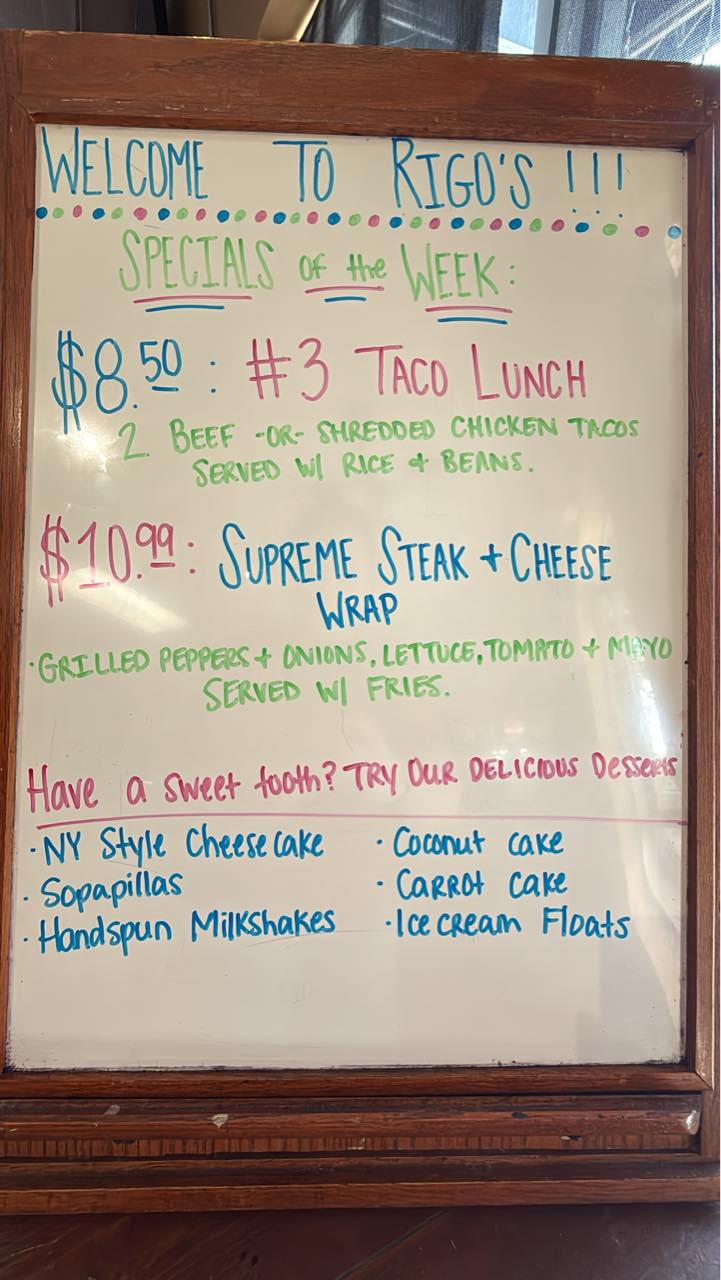 WELCOME TO RIGO'S !!!
SPECIALS of the WEEK:
$8.50 : #3 TACO LUNCH
2 BEEF -OR- SHREDDED CHICKEN TACOS
SERVED W/ RICE + BEANS.
$10.99: SUPREME STEAK + CHEESE
WRAP
·GRILLED PEPPERS + ONIONS, LETTUCE, TOMATO + MAYO
SERVED W/ FRIES.
Have a sweet tooth? TRY OUR DELICIOUS Desserts
·NY Style Cheesecake ·Coconut cake
·Sopapillas ·CARROT cake
·Handspun Milkshakes ·Ice cream Floats